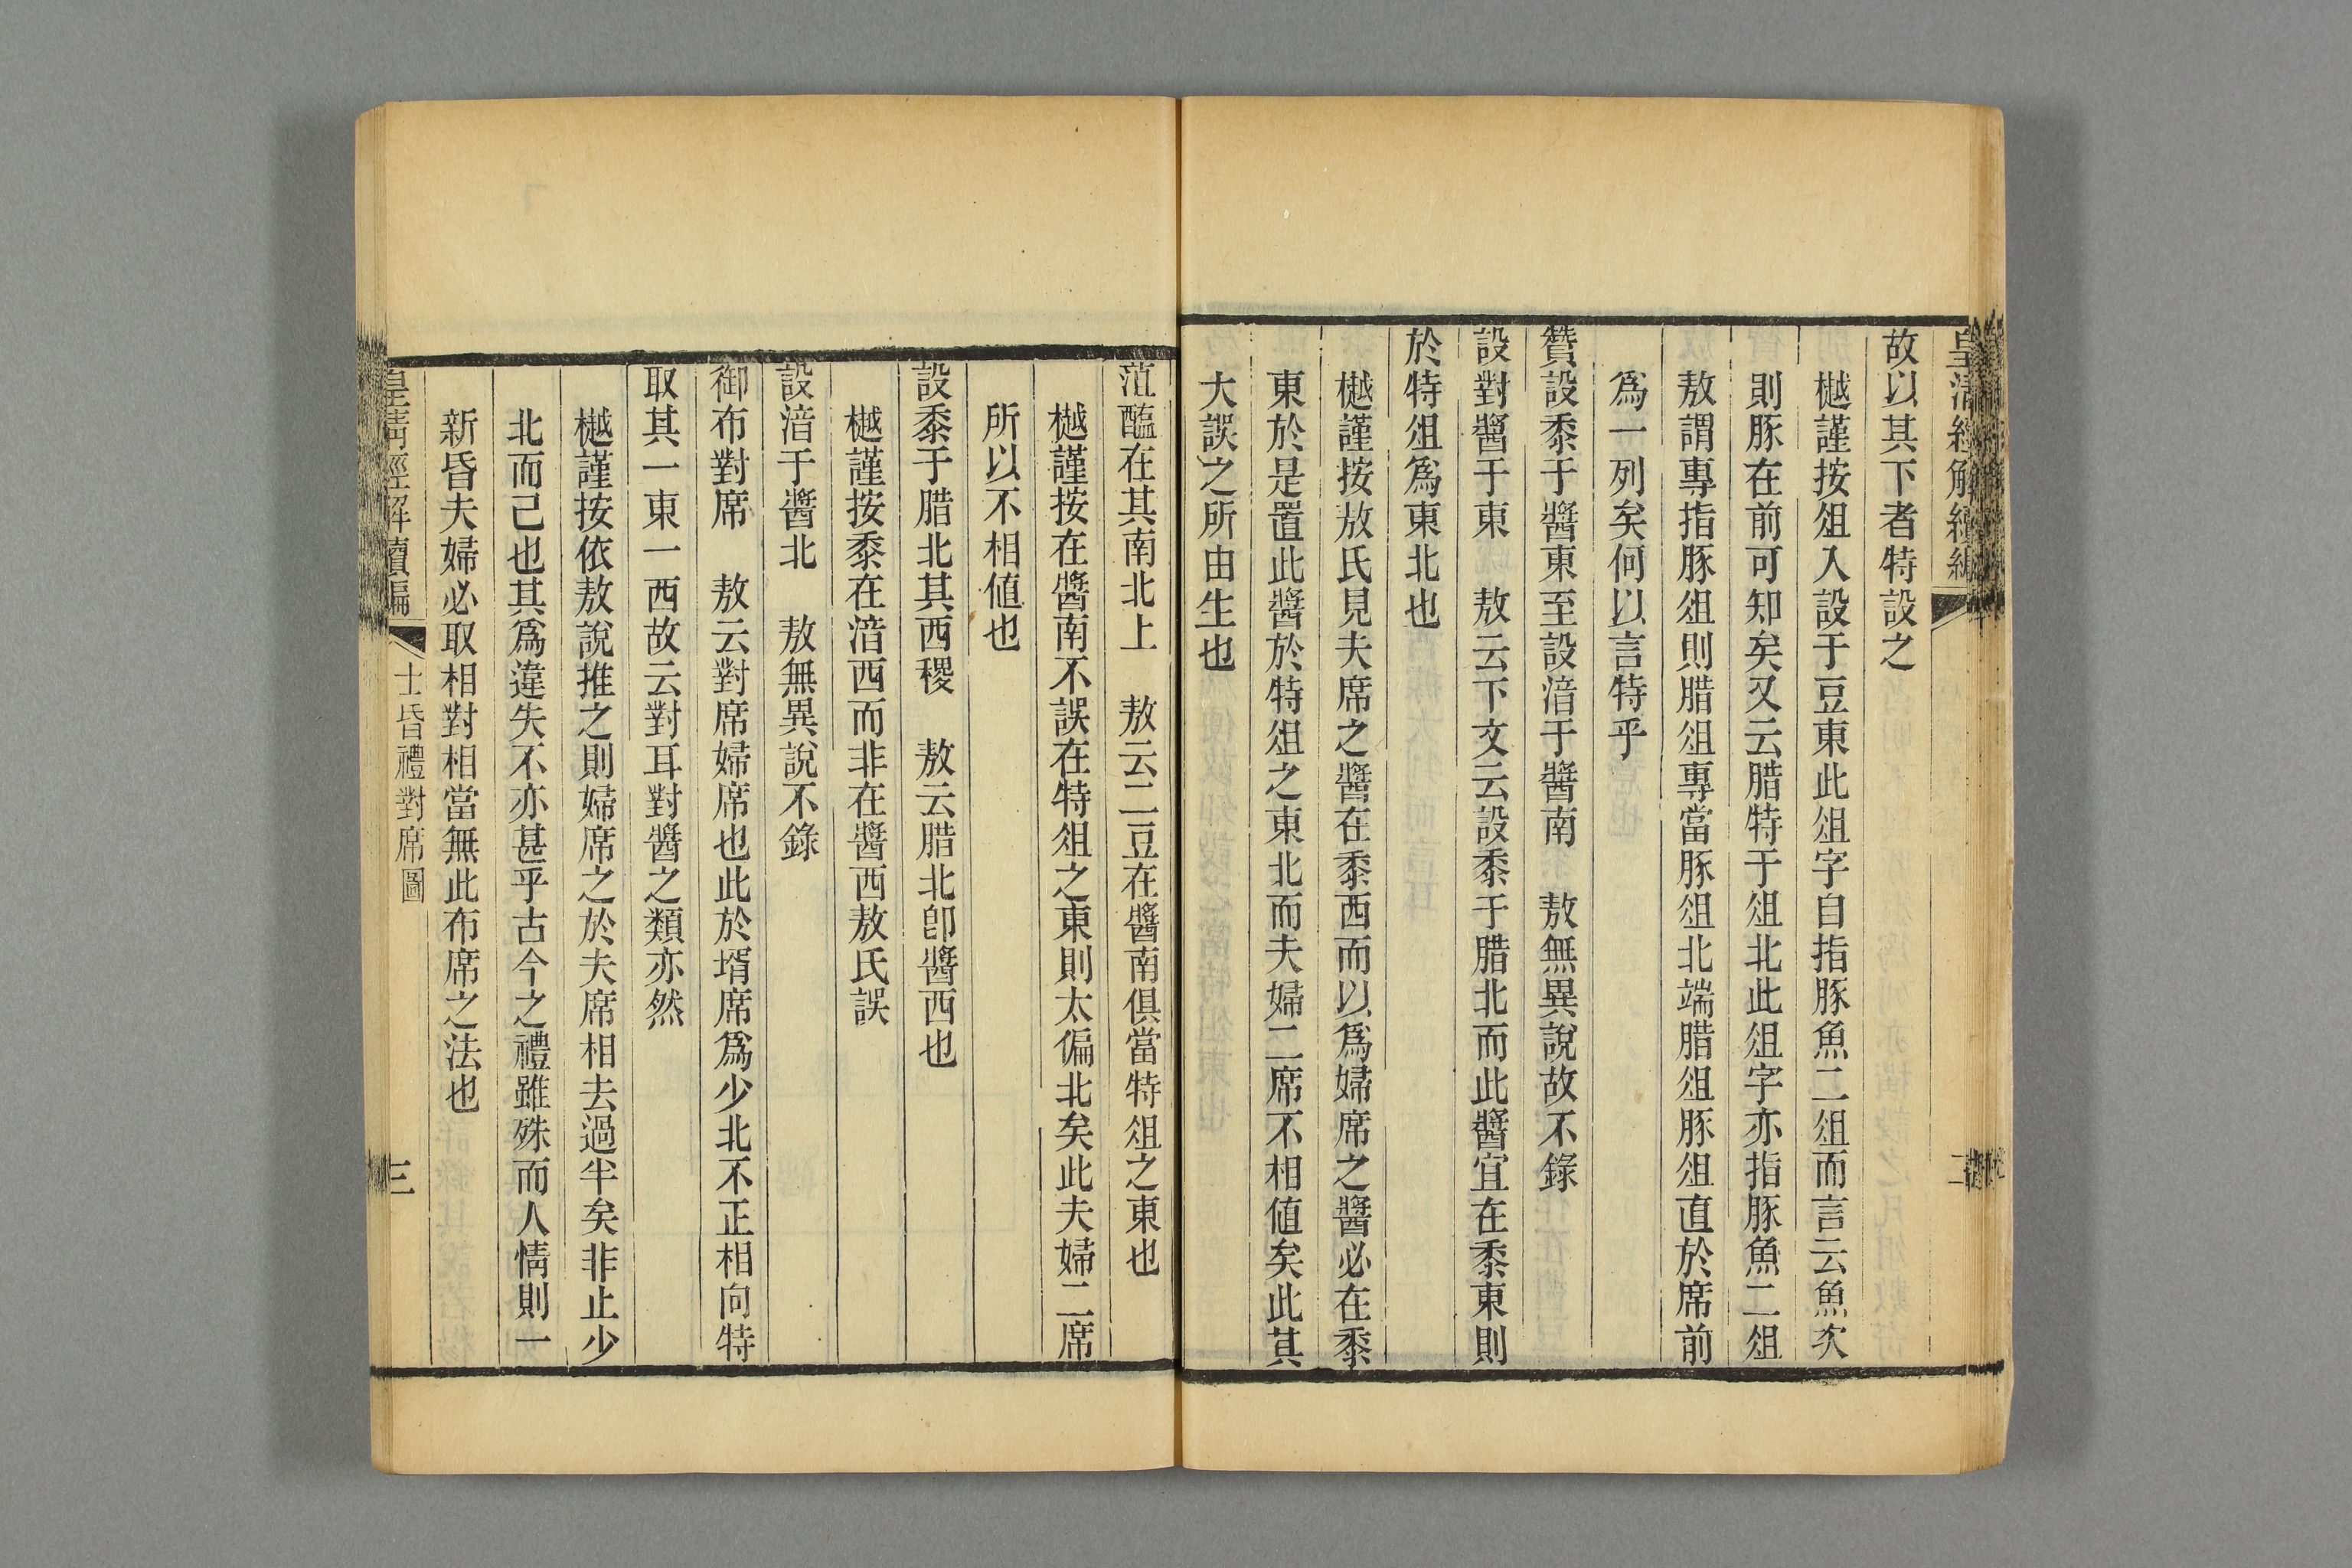 皇清經解續編
故以其下者特設之
樾謹按俎入設于豆東此俎字自指豚魚二俎而言云魚次
則豚在前可知矣又云腊特于俎北此俎字亦指豚魚二俎
敖謂專指豚俎則腊俎專當豚俎北端腊俎豚俎直於席前
爲一列矣何以言特乎
贊設黍于醬東至設湇于醬南　敖無異說故不錄
設對醬于東　敖云下文云設黍于腊北而此醬宜在黍東則
於特俎爲東北也
樾謹按敖氏見夫席之醬在黍西而以爲婦席之醬必在黍
東於是置此醬於特俎之東北而夫婦二席不相値矣此其
大誤之所由生也
菹醢在其南北上　敖云二豆在醬南俱當特俎之東也
樾謹按在醬南不誤在特俎之東則太偏北矣此夫婦二席
所以不相値也
設黍于腊北其西稷　敖云腊北卽醬西也
樾謹按黍在湇西而非在醬西敖氏誤
設湇于醬北　敖無異說不錄
御布對席　敖云對席婦席也此於壻席爲少北不正相向特
取其一東一西故云對耳對醬之類亦然
樾謹按依敖說推之則婦席之於夫席相去過半矣非止少
北而己也其爲違失不亦甚乎古今之禮雖殊而人情則一
新昏夫婦必取相對相當無此布席之法也
皇清經解續編
士昏禮對席圖
三